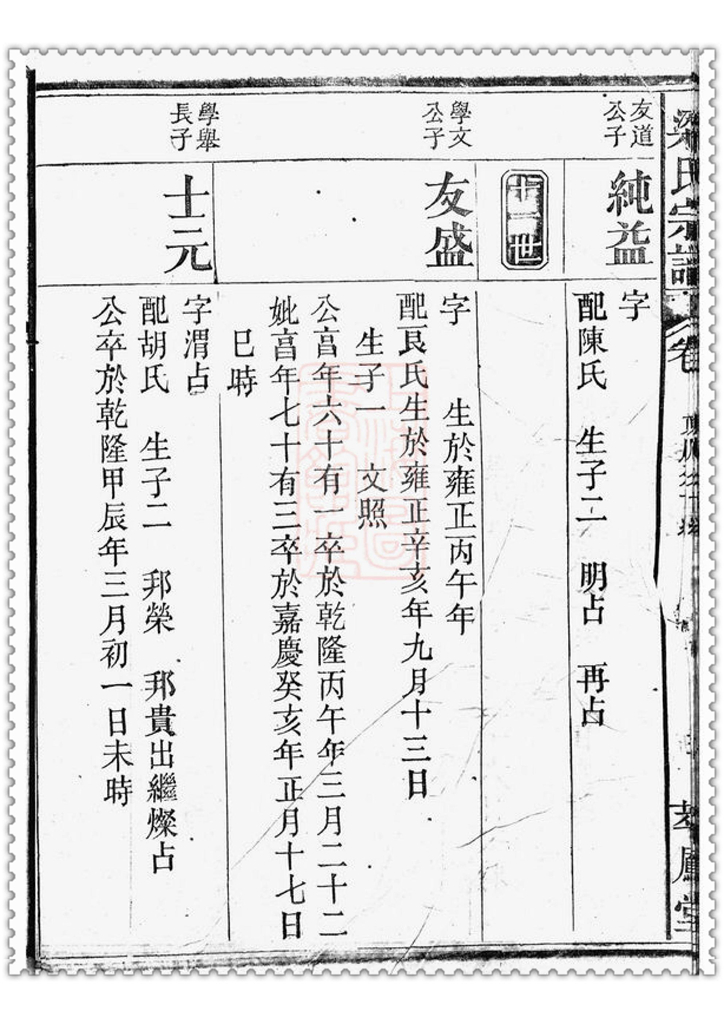 梁氏宗譜
卷
友道公子
純益
字
配陳氏 生子二 明占 再占
十二世
學文公子
友盛
字 生於雍正丙午年
配艮氏生於雍正辛亥年九月十三日
生子一 文照
公亯年六十有一卒於乾隆丙午年三月二十二
妣亯年七十有三卒於嘉慶癸亥年正月十七日
巳時
學舉長子
士元
字渭占
配胡氏 生子二 邦榮 邦貴出繼燦占
公卒於乾隆甲辰年三月初一日未時